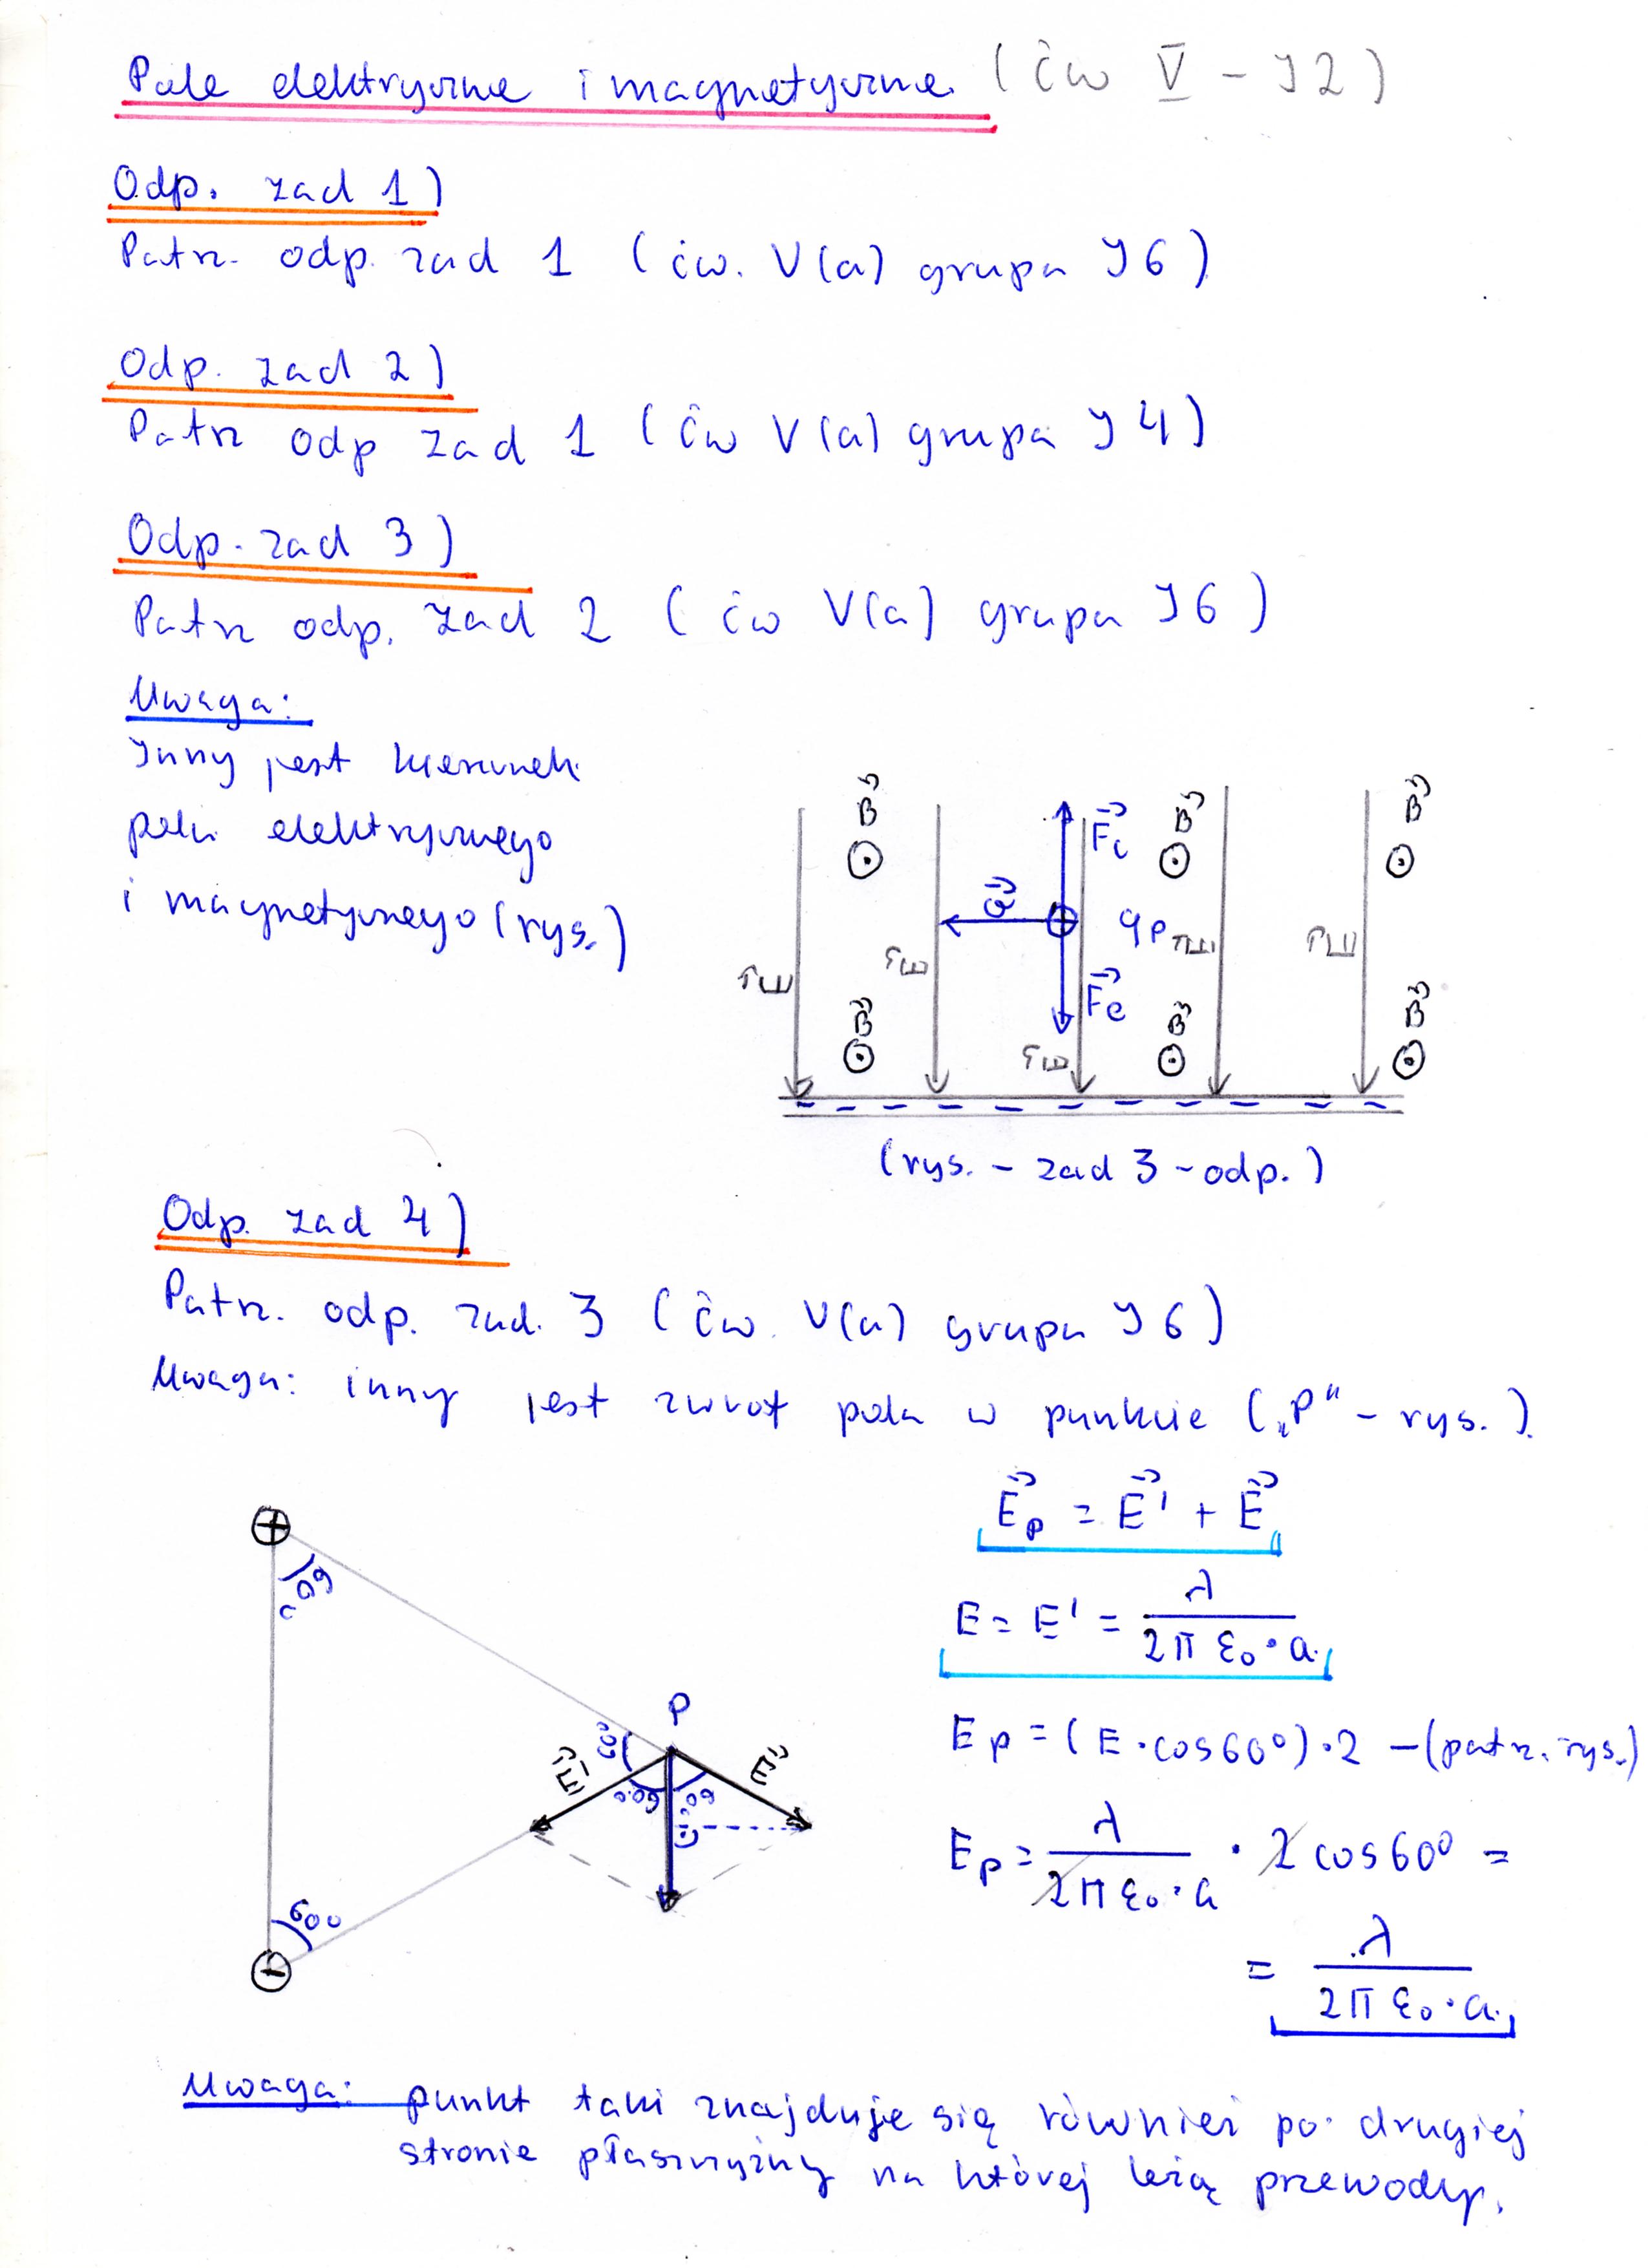 Pole elektryczne i magnetyczne (ćw V - J2)
Odp. zad 1)
Patrz. odp. zad 1 (ćw. V(a) grupa J6)
Odp. zad 2)
Patrz odp zad 1 (ćw V(a) grupa J4)
Odp. zad 3)
Patrz odp. zad 2 (ćw V(a) grupa J6)
Uwaga:
Inny jest kierunek
pola elektrycznego
i magnetycznego (rys.)
B B B
Fc
v qp
E E E E
Fe
B B B
E
(rys. - zad 3 - odp.)
Odp. zad 4)
Patrz. odp. zad. 3 (ćw. V(a) grupa J6)
Uwaga: inny jest zwrot pola w punkcie („P" - rys.).
Ep = E' + E
60°
E = E' = λ / 2π ε₀ · a
P
Ep = (E · cos60°) · 2 - (patrz. rys.)
60° E' E
60° 60°
Ep = λ / 2π ε₀ · a · 2 cos60° =
60°
= λ / 2π ε₀ · a
Uwaga: punkt taki znajduje się również po drugiej
stronie płaszczyzny na której leżą przewody.